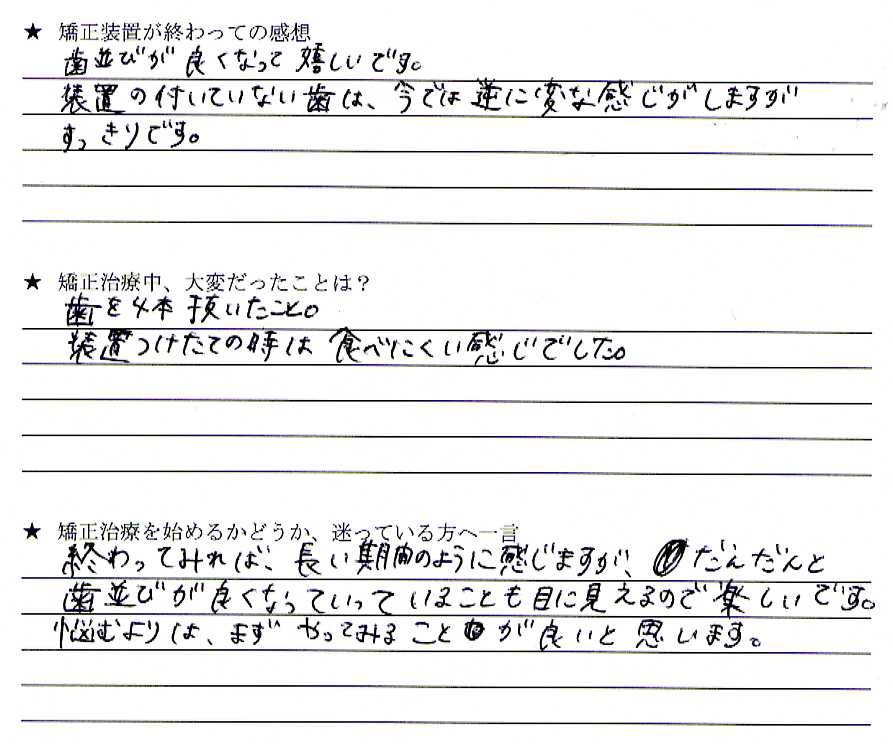 ★ 矯正装置が終わっての感想
歯並びが良くなって嬉しいです。
装置の付いていない歯は、今では逆に変な感じがしますが
すっきりです。
★ 矯正治療中、大変だったことは？
歯を4本頂いたこと。
装置つけたての時は食べにくい感じでした。
★ 矯正治療を始めるかどうか、迷っている方へ一言
終わってみれば、長い期間のように感じますが、だんだんと
歯並びが良くなっていっていることも目に見えるので楽しいです。
悩むよりは、まずやってみることが良いと思います。